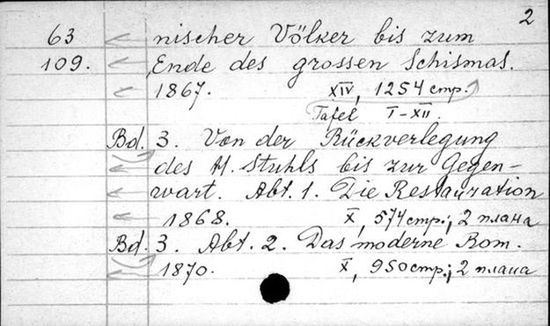 2
63 nischer Völker bis zum
109. Ende des grossen Schismas.
1867. XIV, 1254 стр.
Tafel I-XII.
Bd. 3. Von der Rückverlegung
des H. Stuhls bis zur Gegen-
wart. Abt. 1. Die Restauration
1868. X, 574 стр.; 2 плана
Bd. 3. Abt. 2. Das moderne Rom.
1870. X, 950 стр.; 2 плана